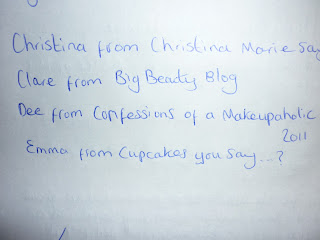 Christina from Christina Marie Say
Clare from Big Beauty Blog
Dee from Confessions of a Makeupaholic
2011
Emma from Cupcakes you say...?